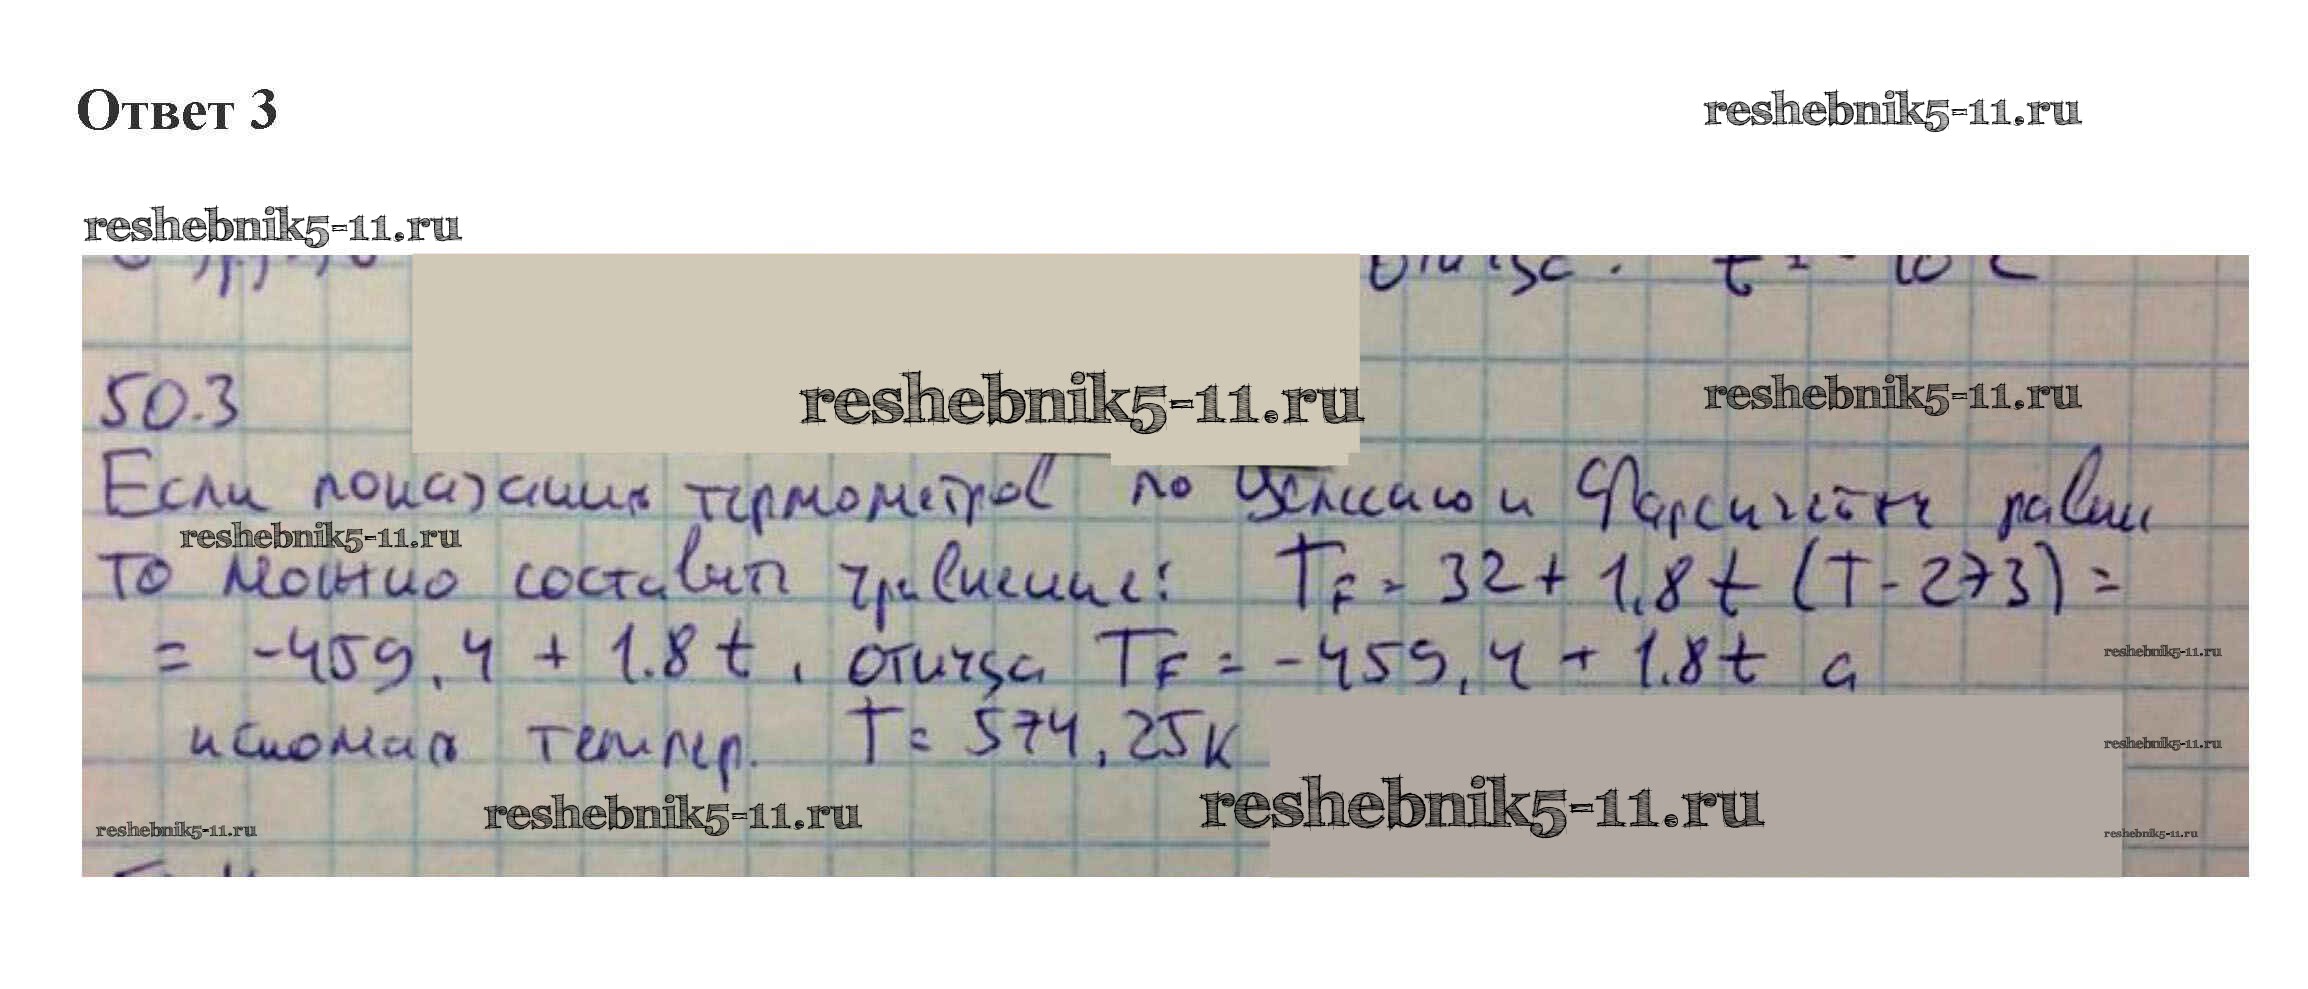 Ответ 3
reshebnik5-11.ru
reshebnik5-11.ru
t = - 10 C
50.3
reshebnik5-11.ru
reshebnik5-11.ru
Если показания термометров по Цельсию и Фаренгейту равны
reshebnik5-11.ru
то можно составить уравнение: TF = 32 + 1.8 t (T - 273) =
= -459,4 + 1.8 t , откуда TF = -459,4 + 1.8 t а
reshebnik5-11.ru
искомая темпер. T = 574,25 К
reshebnik5-11.ru
reshebnik5-11.ru
reshebnik5-11.ru
reshebnik5-11.ru
reshebnik5-11.ru